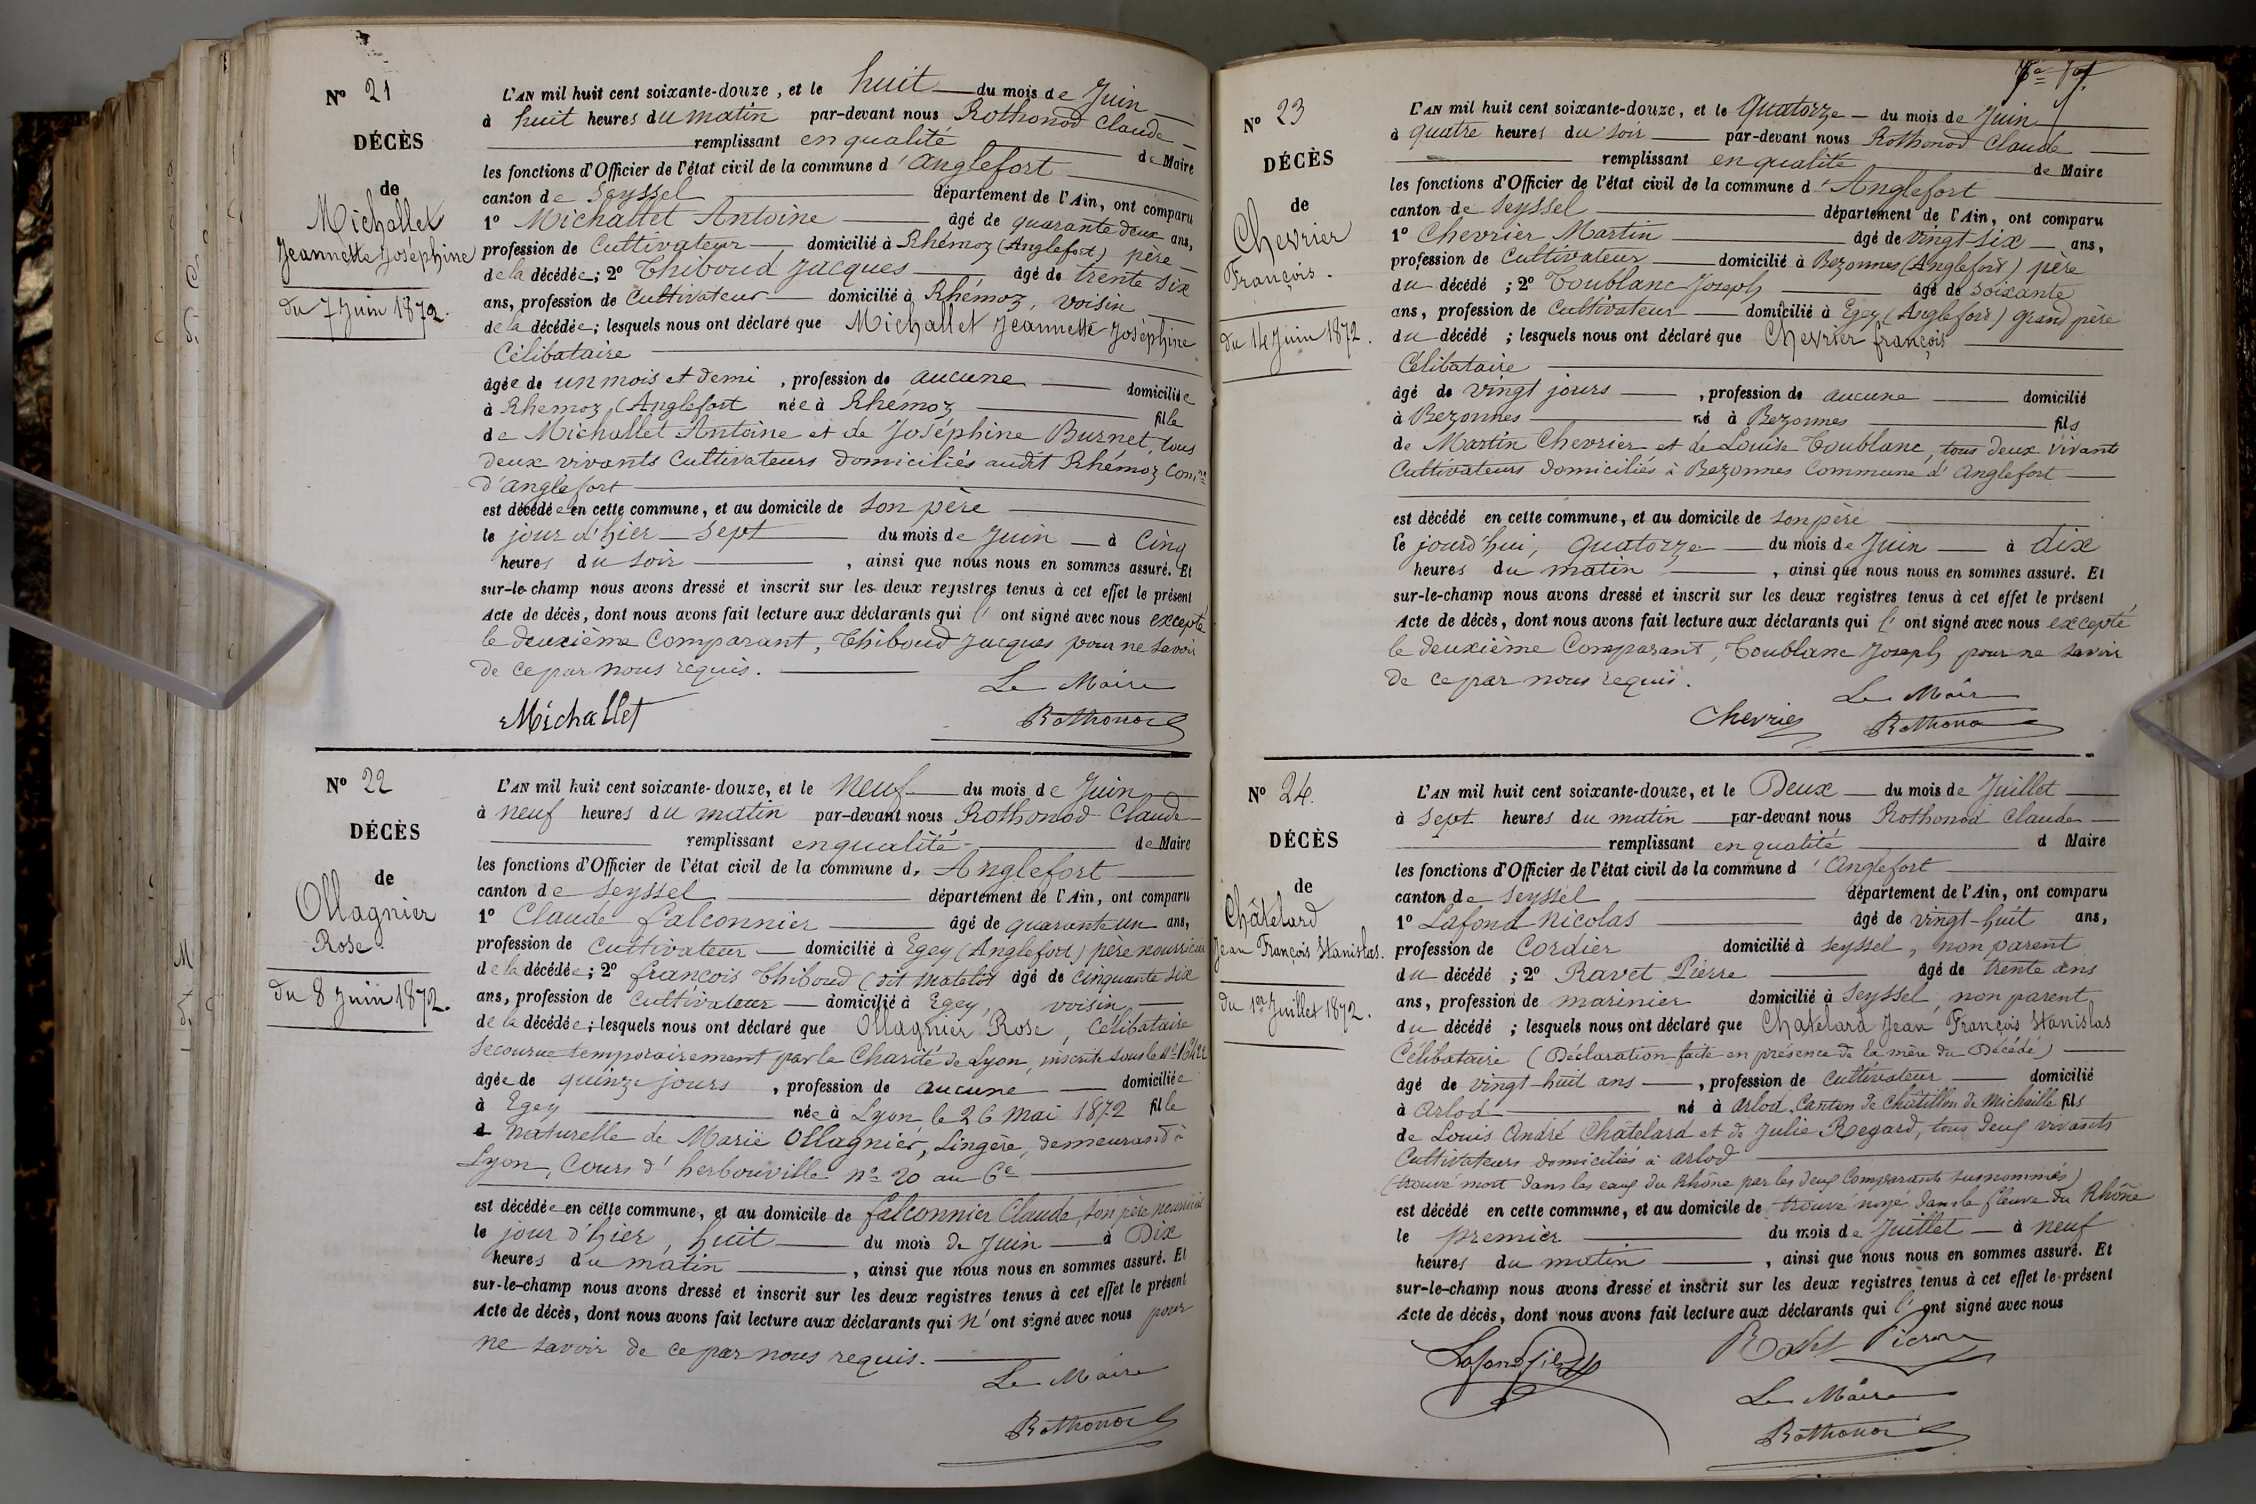 Nº 21
DÉCÈS
de
Michallet
Jeannette Joséphine
du 7 Juin 1872.
L'AN mil huit cent soixante-douze, et le huit du mois de Juin
à huit heures du matin par-devant nous Rothonod Claude
remplissant en qualité de Maire
les fonctions d'Officier de l'état civil de la commune d'Anglefort
canton de Seyssel département de l'Ain, ont comparu
1º Michallet Antoine âgé de quarante deux ans,
profession de Cultivateur domicilié à Rhémoz (Anglefort) père
de la décédée; 2º Thiboud Jacques âgé de trente six
ans, profession de Cultivateur domicilié à Rhémoz, voisin
de la décédée; lesquels nous ont déclaré que Michallet Jeannette Joséphine
Célibataire
âgée de un mois et demi, profession de aucune domiciliée
à Rhemoz (Anglefort née à Rhémoz fille
de Michallet Antoine et de Joséphine Burnet, tous
deux vivants Cultivateurs domiciliés audit Rhémoz Com.ne
d'anglefort
est décédée en cette commune, et au domicile de son père
le jour d'hier sept du mois de Juin à Cinq
heures du soir, ainsi que nous nous en sommes assuré. Et
sur-le-champ nous avons dressé et inscrit sur les deux registres tenus à cet effet le présent
Acte de décès, dont nous avons fait lecture aux déclarants qui l'ont signé avec nous excepté
le deuxième Comparant, Thiboud Jacques pour ne savoir
de ce par nous requis.
Le Maire
Michallet Rothonod
Nº 22
DÉCÈS
de
Ollagnier
Rose
du 8 Juin 1872.
L'AN mil huit cent soixante-douze, et le neuf du mois de Juin
à neuf heures du matin par-devant nous Rothonod Claude
remplissant en qualité de Maire
les fonctions d'Officier de l'état civil de la commune d'Anglefort
canton de Seyssel département de l'Ain, ont comparu
1º Claude falconnier âgé de quarante un ans,
profession de Cultivateur domicilié à Egey (Anglefort) père nourricier
de la décédée; 2º françois Thiboud (dit matelot âgé de cinquante six
ans, profession de Cultivateur domicilié à Egey, voisin,
de la décédée; lesquels nous ont déclaré que Ollagnier Rose, Célibataire
secourue temporairement par la Charité de Lyon, inscrite sous le Nº 16422
âgée de quinze jours, profession de aucune domiciliée
à Egey née à Lyon, le 26 mai 1872 fille
naturelle de Marie Ollagnier, Lingère, demeurand à
Lyon, Cours d'herbouville nº 20 au 6e
est décédée en cette commune, et au domicile de falconnier Claude, son père nourricier
le jour d'hier, huit du mois de Juin à Dix
heures du matin, ainsi que nous nous en sommes assuré. Et
sur-le-champ nous avons dressé et inscrit sur les deux registres tenus à cet effet le présent
Acte de décès, dont nous avons fait lecture aux déclarants qui n'ont signé avec nous pour
ne savoir de ce par nous requis.
Le Maire
Rothonod
Nº 23
DÉCÈS
de
Chevrier
François.
du 14 Juin 1872.
L'AN mil huit cent soixante-douze, et le Quatorze du mois de Juin
à quatre heures du soir par-devant nous Rothonod Claude
remplissant en qualité de Maire
les fonctions d'Officier de l'état civil de la commune d'Anglefort
canton de Seyssel département de l'Ain, ont comparu
1º Chevrier Martin âgé de vingt-six ans,
profession de Cultivateur domicilié à Bezonnes (Anglefort) père
du décédé; 2º Toublanc Joseph âgé de soixante
ans, profession de Cultivateur domicilié à Egey (Anglefort) grand père
du décédé; lesquels nous ont déclaré que Chevrier françois
Célibataire
âgé de vingt jours, profession de aucune domicilié
à Bezonnes né à Bezonnes fils
de Martin Chevrier et de Louise Toublanc, tous deux vivants
Cultivateurs domiciliés à Bezonnes Commune d'Anglefort
est décédé en cette commune, et au domicile de son père
le jourd'hui, Quatorze du mois de Juin à dix
heures du matin, ainsi que nous nous en sommes assuré. Et
sur-le-champ nous avons dressé et inscrit sur les deux registres tenus à cet effet le présent
Acte de décès, dont nous avons fait lecture aux déclarants qui l'ont signé avec nous excepté
le deuxième Comparant, Toublanc Joseph pour ne savoir
de ce par nous requis.
Le Maire
Chevrier Rothonod
Nº 24.
DÉCÈS
de
Châtelard
Jean François Stanislas.
du 1er Juillet 1872.
L'AN mil huit cent soixante-douze, et le Deux du mois de Juillet
à sept heures du matin par-devant nous Rothonod Claude
remplissant en qualité d Maire
les fonctions d'Officier de l'état civil de la commune d'Anglefort
canton de Seyssel département de l'Ain, ont comparu
1º Lafond Nicolas âgé de vingt-huit ans,
profession de Cordier domicilié à Seyssel, non parent
du décédé; 2º Ravet Pierre âgé de trente ans
ans, profession de marinier domicilié à Seyssel, non parent
du décédé; lesquels nous ont déclaré que Chatelard Jean François Stanislas
Célibataire (Déclaration faite en présence de la mère du Décédé)
âgé de vingt-huit ans, profession de Cultivateur domicilié
à Arlod né à Arlod, Canton de Châtillon de Michaille fils
de Louis André Chatelard et de Julie Regard, tous deux vivants
Cultivateurs domiciliés à Arlod
(trouvé mort dans les eaux du Rhône par les deux Comparants susnommés)
est décédé en cette commune, et au domicile de trouvé noyé dans le fleuve du Rhône
le premier du mois de Juillet à neuf
heures du matin, ainsi que nous nous en sommes assuré. Et
sur-le-champ nous avons dressé et inscrit sur les deux registres tenus à cet effet le présent
Acte de décès, dont nous avons fait lecture aux déclarants qui l'ont signé avec nous
Ravet Pierre
Le Maire
Rothonod